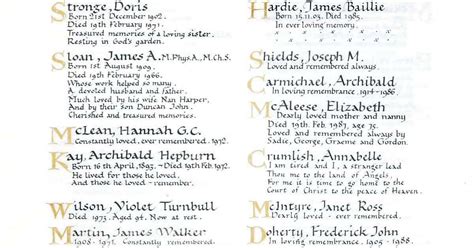 Stronge, Doris
Born 21st December 1902.
Died 19th February 1971.
Treasured memories of a loving sister.
Resting in God's garden.
Sloan, James A. M.Phys.A., M.Ch.S.
Born 1st August 1909.
Died 19th February 1966.
Whose work helped so many.
A devoted husband and father.
Much loved by his wife Nan Harper,
And by their son Duncan John.
Cherished and treasured memories.
McLean, Hannah G.C.
Constantly loved, ever remembered. 1972.
Kay, Archibald Hepburn
Born 16th April, 1893, ~ Died 19th Feb. 1972.
He lived for those he loved.
And those he loved ~ remember.
Wilson, Violet Turnbull
Died 1973. Aged 94. Now at rest.
Martin, James Walker
1908 - 1971. Constantly remembered.
Hardie, James Baillie
Born 15.11.03. Died 1985.
In ever loving memory.
Shields, Joseph M.
Loved and remembered always.
Carmichael, Archibald
In loving remembrance. 1914 - 1986.
McAleese, Elizabeth
Dearly loved mother and nanny
Died 19th Feb 1987, age 75.
Loved and remembered always by
Sadie, George, Graeme and Gordon.
Crumlish, Annabelle
I am tired and I, a stranger lead
Thou me to the land of Angels
For me it is time to go home to the
Court of Christ to the peace of Heaven.
McIntyre, Janet Ross
Dearly loved ~ ever remembered.
Doherty, Frederick John
In loving remembrance. 1908 - 1988.